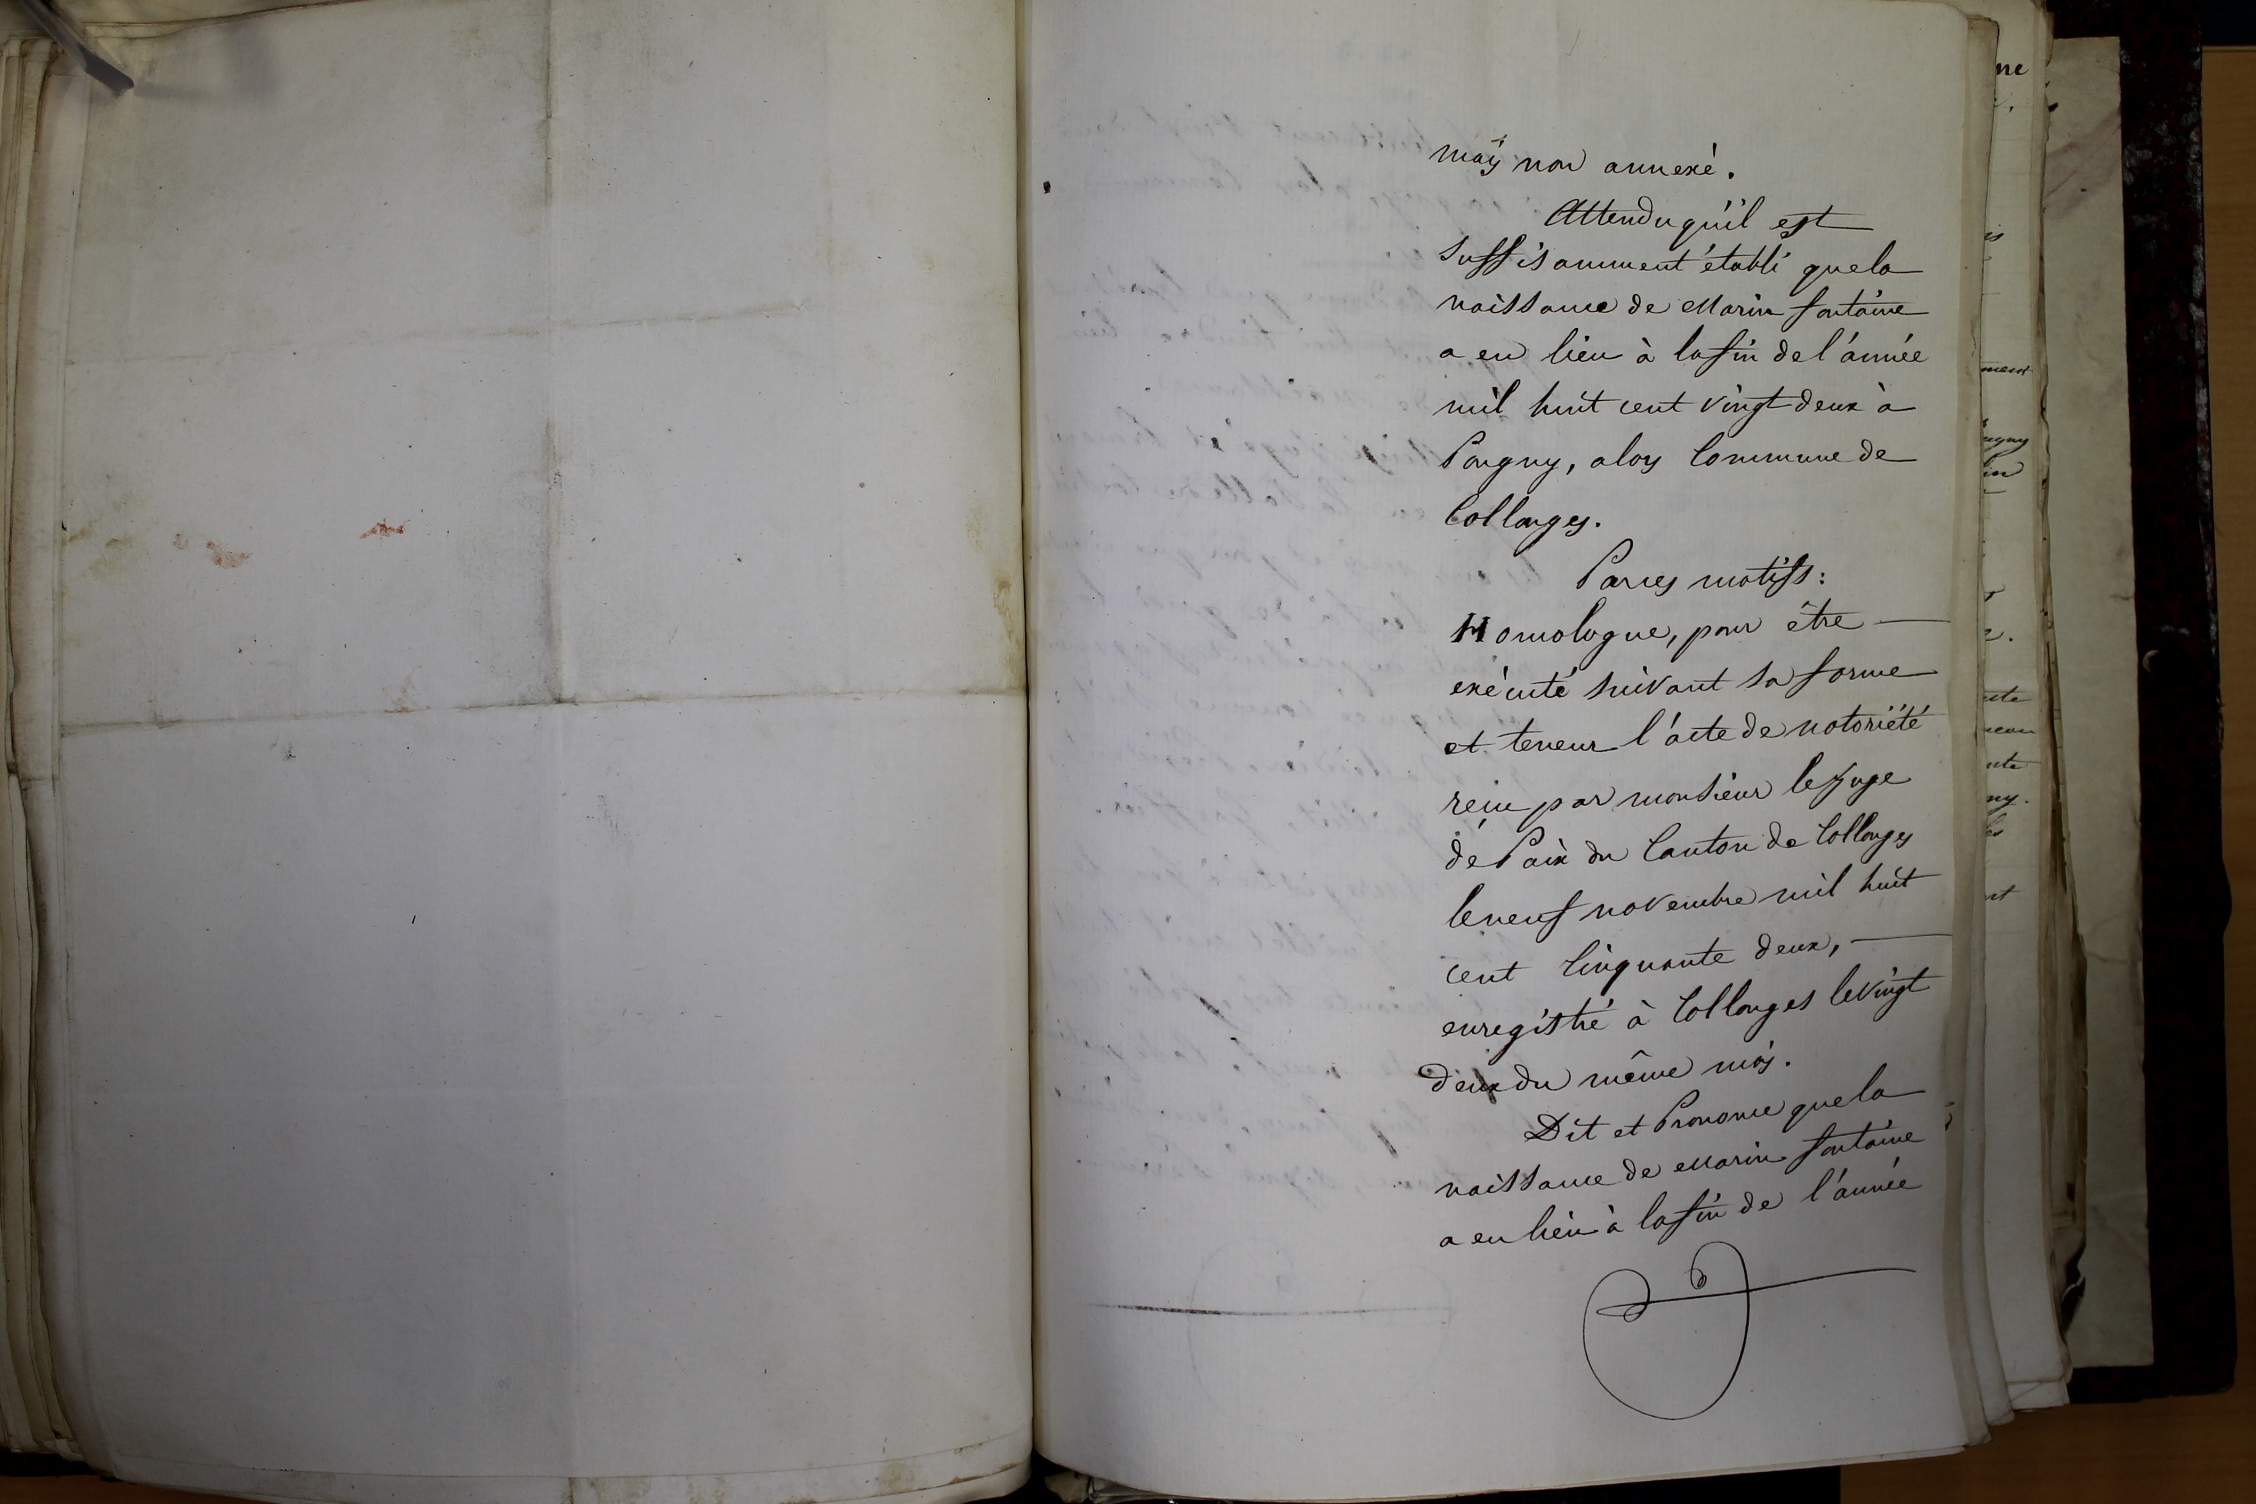 mais non annexé.
Attendu qu'il est
suffisamment établi que la
naissance de Marin fontaine
a eu lieu à la fin de l'année
mil huit cent vingt deux à
Pougny, alors Commune de
Collonges.
Par ces motifs:
Homologue, pour être
exécuté suivant sa forme
et teneur l'acte de notoriété
reçu par monsieur le Juge
de Paix du Canton de Collonges
le neuf novembre mil huit
cent Cinquante deux,
enregistré à Collonges le vingt
deux du même mois.
Dit et Prononce que la
naissance de Marin fontaine
a eu lieu à la fin de l'année